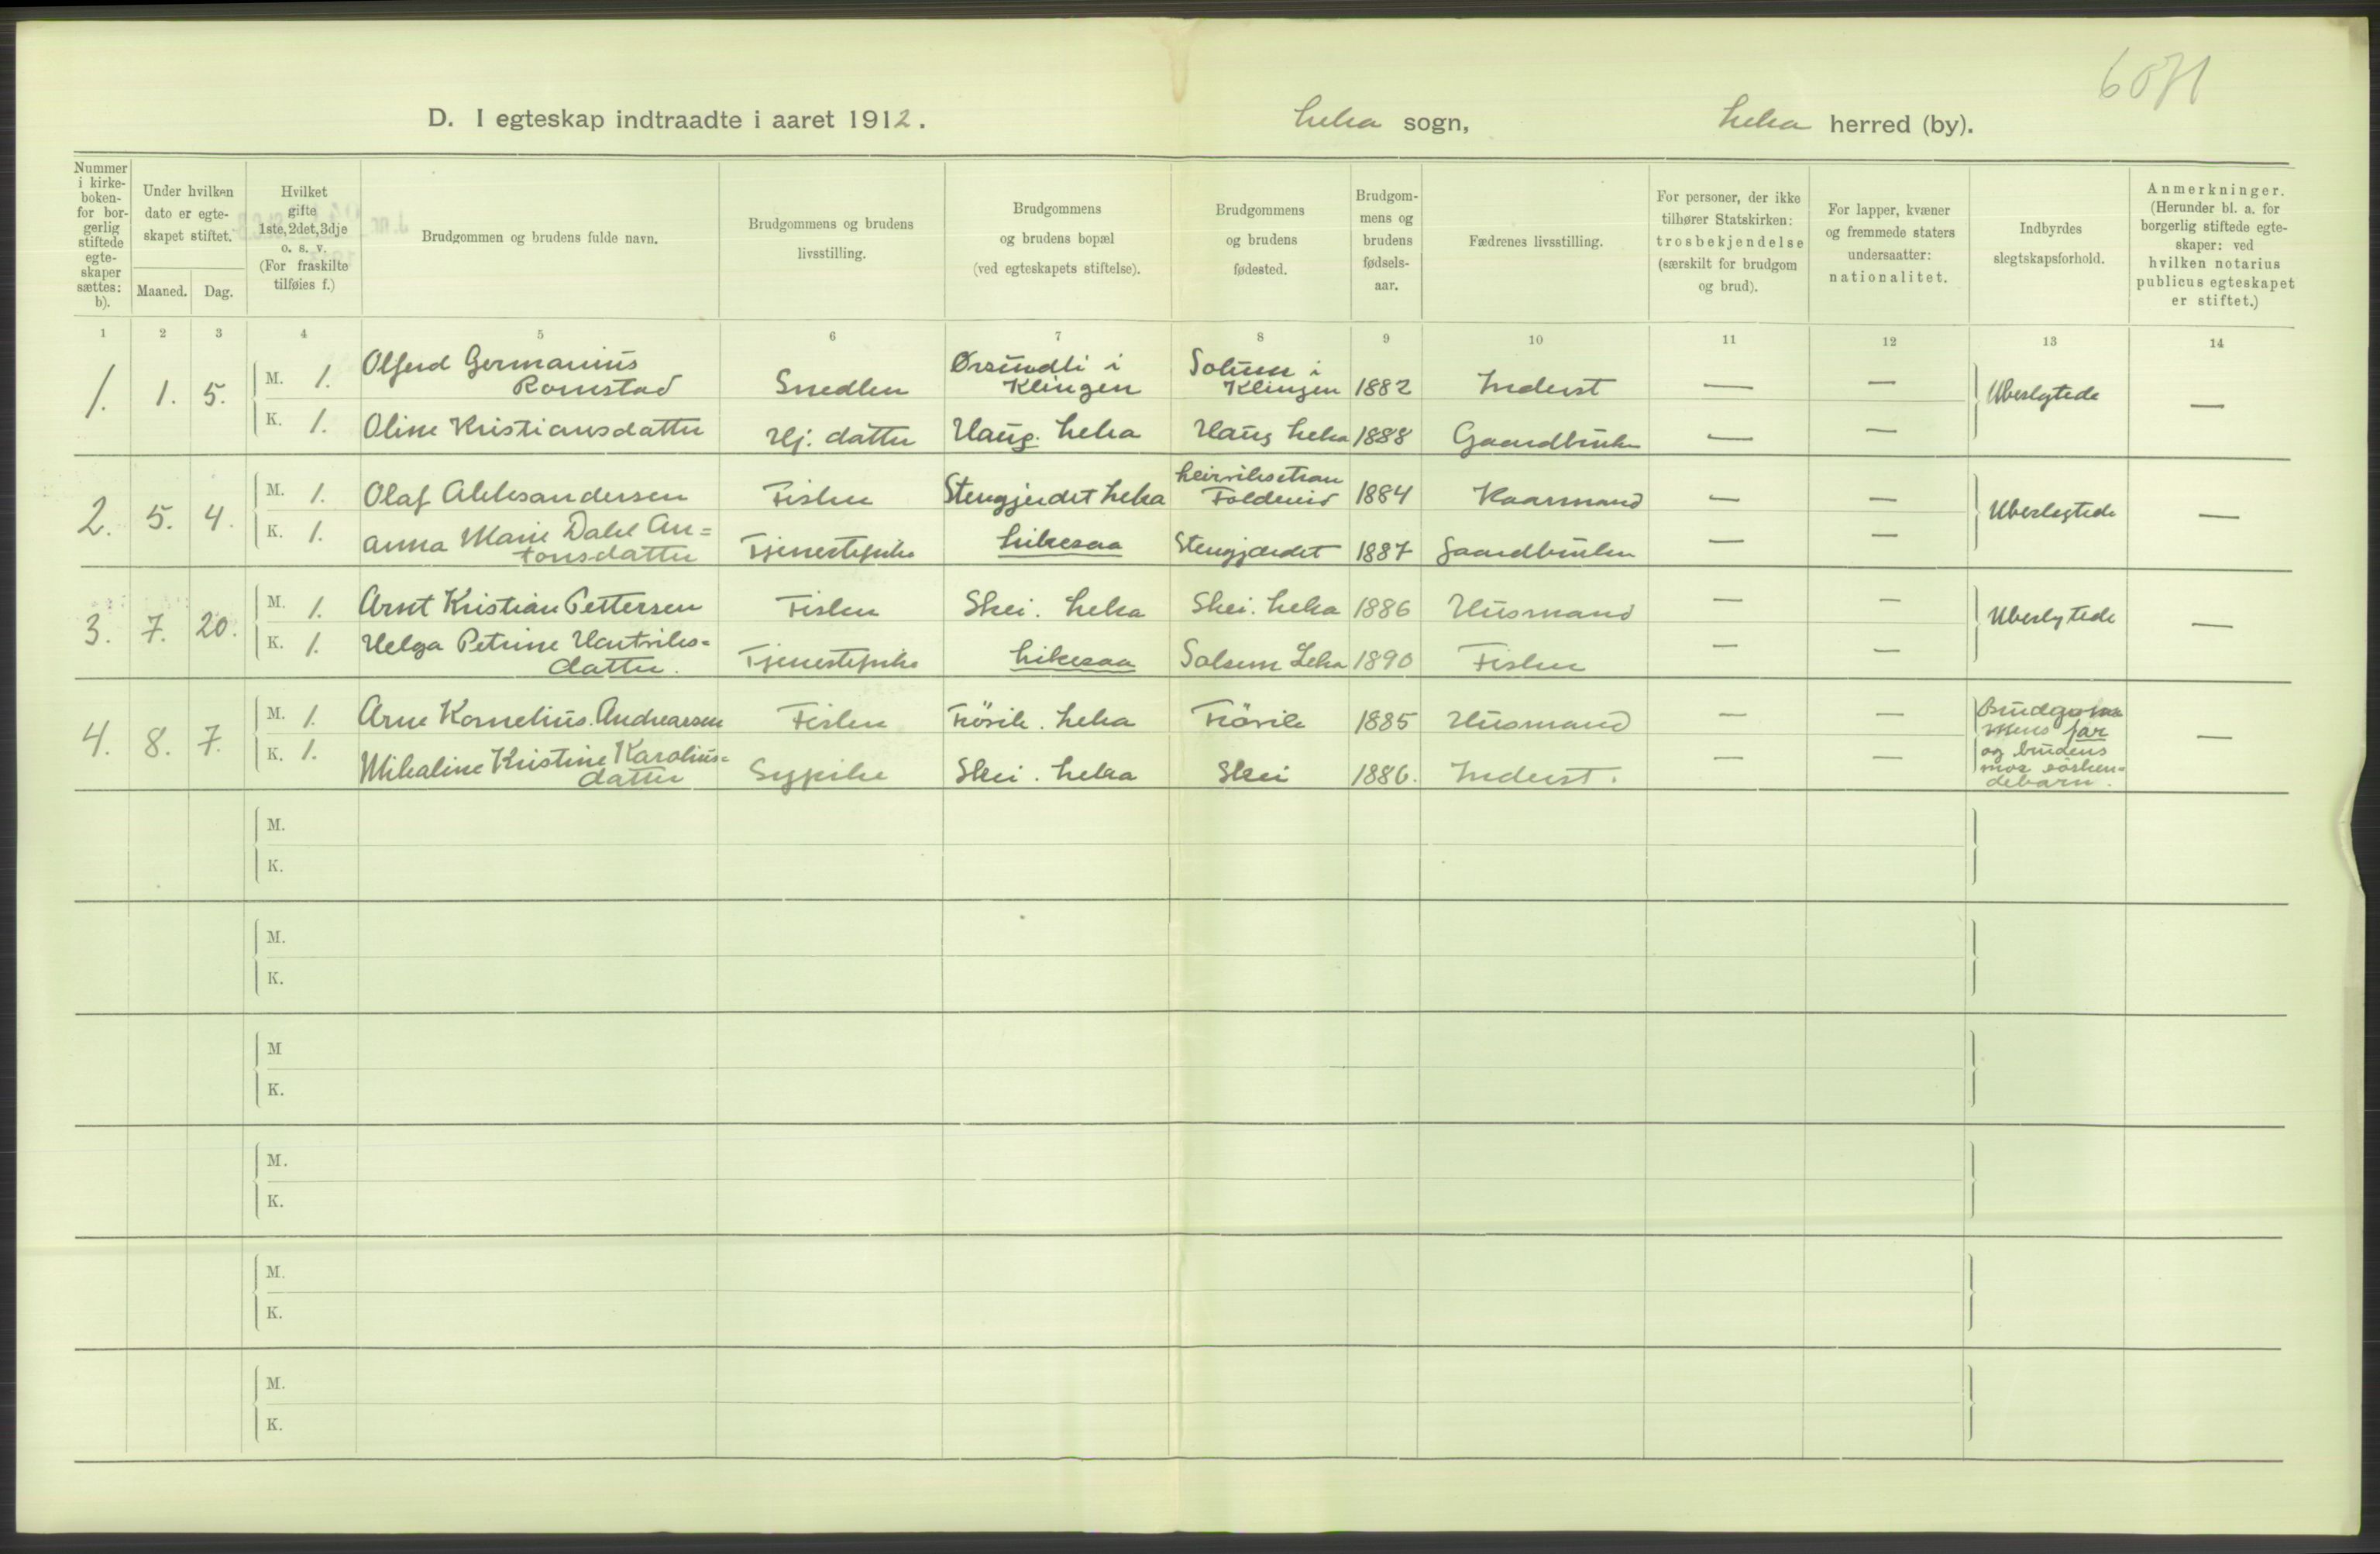 6071
D. I egteskap indtraadte i aaret 1912. Leka sogn, Leka herred (by).
Nummer i kirke-boken- for bor-gerlig stiftede egte-skaper sættes: b).
Under hvilken dato er egte-skapet stiftet.
Maaned. Dag.
Hvilket gifte 1ste, 2det, 3dje o. s. v. (For fraskilte tilføies f.)
Brudgommen og brudens fulde navn.
Brudgommens og brudens livsstilling.
Brudgommens og brudens bopæl (ved egteskapets stiftelse).
Brudgommens og brudens fødested.
Brudgom-mens og brudens fødsels-aar.
Fædrenes livsstilling.
For personer, der ikke tilhører Statskirken: trosbekjendelse (særskilt for brudgom og brud).
For lapper, kvæner og fremmede staters undersaatter: nationalitet.
Indbyrdes slegtskapsforhold.
Anmerkninger. (Herunder bl. a. for borgerlig stiftede egte-skaper: ved hvilken notarius publicus egteskapet er stiftet.)
1 2 3 4 5 6 7 8 9 10 11 12 13 14
1. 1. 5. M. 1. Olferd Germanius Romstad Snedker Ørsundli i Klingen Solum i Klingen 1882 Inderst — — Ubeslegtede —
K. 1. Oline Kristiansdatter Hj. datter Haug. Leka Haug Leka 1888 Gaardbruker — —
2. 5. 4. M. 1. Olaf Aleksandersen Fisker Stengjerdet Leka Leirvikstran Foldereid 1884 Kaarmand — — Ubeslegtede —
K. 1. Anna Marie Dahl An=tonsdatter Tjenestepike Likesaa Stengjærdet 1887 Gaardbruker — —
3. 7. 20. M. 1. Arnt Kristian Pettersen Fisker Skei. Leka Skei. Leka 1886 Husmand — — Ubeslegtede —
K. 1. Helga Petrine Hartviks=datter. Tjenestepike Likesaa Solsem Leka 1890 Fisker — —
4. 8. 7. M. 1. Arne Kornelius Andreassen Fisker Frövik. Leka Frövik 1885 Husmand — — Brudgom mens far og brudens mor sösken=debarn. —
K. 1. Mikaline Kristine Karolius=datter Sypike Skei. Leka Skei 1886. Inderst. — —
M.
K.
M.
K.
M
K.
M.
K.
M.
K.
M.
K.